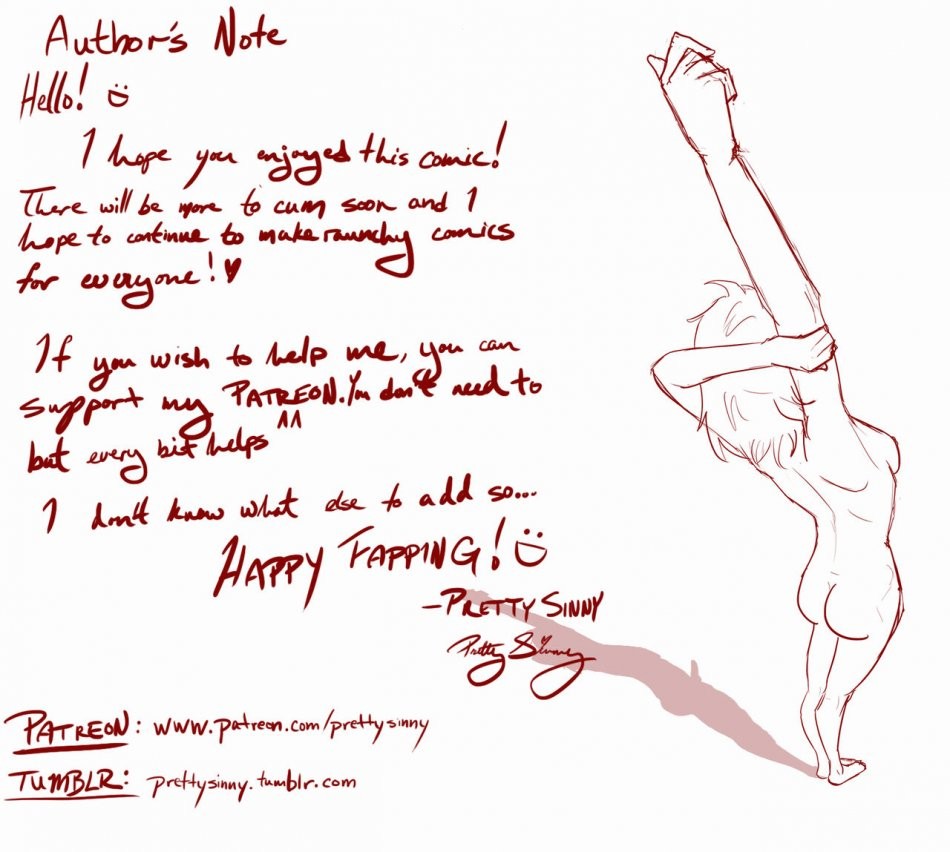 Author's Note
Hello! :D
I hope you enjoyed this comic!
There will be more to cum soon and I
hope to continue to make raunchy comics
for everyone! ♥
If you wish to help me, you can
support my PATREON. You don't need to
but every bit helps ^^
I don't know what else to add so...
HAPPY FAPPING! :D
-PRETTY SINNY
Pretty Sinny
PATREON: www.patreon.com/prettysinny
TUMBLR: prettysinny.tumblr.com